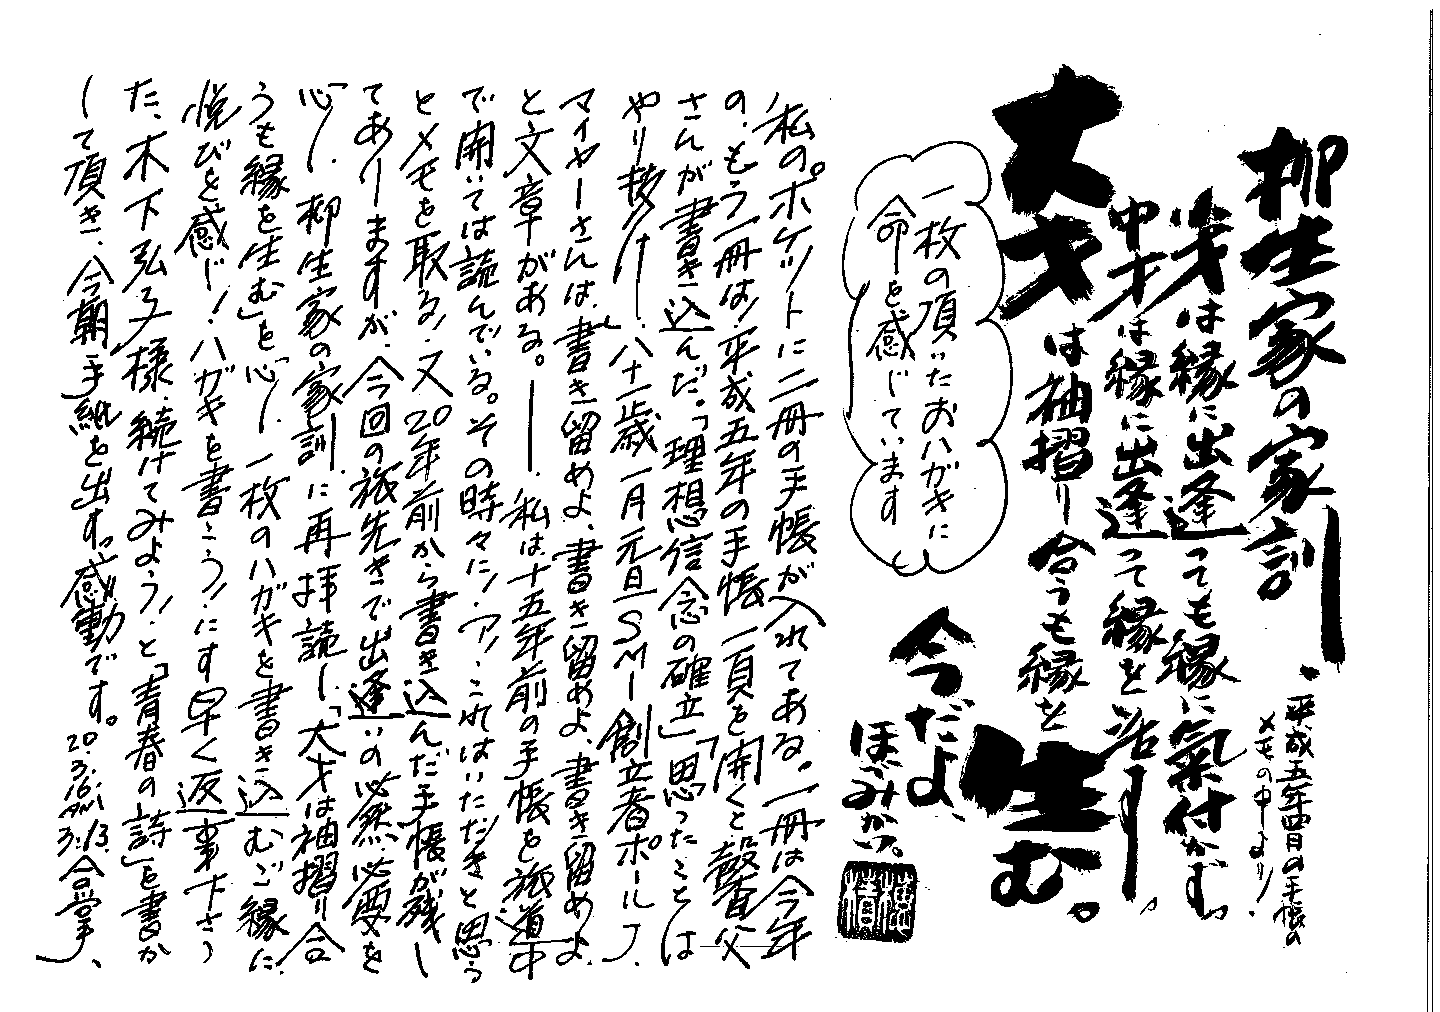 柳生家の家訓
・平成五年四月の手帳の
メモの中より!
小才は縁に出逢っても縁に氣付かず、
中才は縁に出逢って縁を活
大才は袖摺り合うも縁を生む。
一枚の頂いたおハガキに
命を感じています
今だよ、
ほっみかい。
私のポケットに二冊の手帳が入れてある。一冊は今年
の、もう一冊は!平成五年の手帳 一頁を開くと 父
さんが書き込んだ。「理想信念の確立」「思ったことは
やり抜け―」八十一歳 一月元旦 SMI創立者ポールJ.
マイヤーさんは、書き留めよ、書き留めよ、書き留めよ
と文章がある。――、私は十五年前の手帳を旅道中
で開いては読んでいる。その時々に!アッこれはいただきと思う
とメモを取る!又20年前から書き込んだ手帳が残し
てありますが、今回の旅先きで出逢いの必然必要を
心し、柳生家の家訓に再拝読し、「大才は袖摺り合
うも縁を生む」を心し 一枚のハガキを書き込むご縁に
悦びを感じ!ハガキを書こう!にす早く返事下さっ
た、木下弘子様、続けてみよう!と「青春の詩」を書か
して頂き、今朝手紙を出す。感動です。20.3.16. AM 3:13. 合掌、